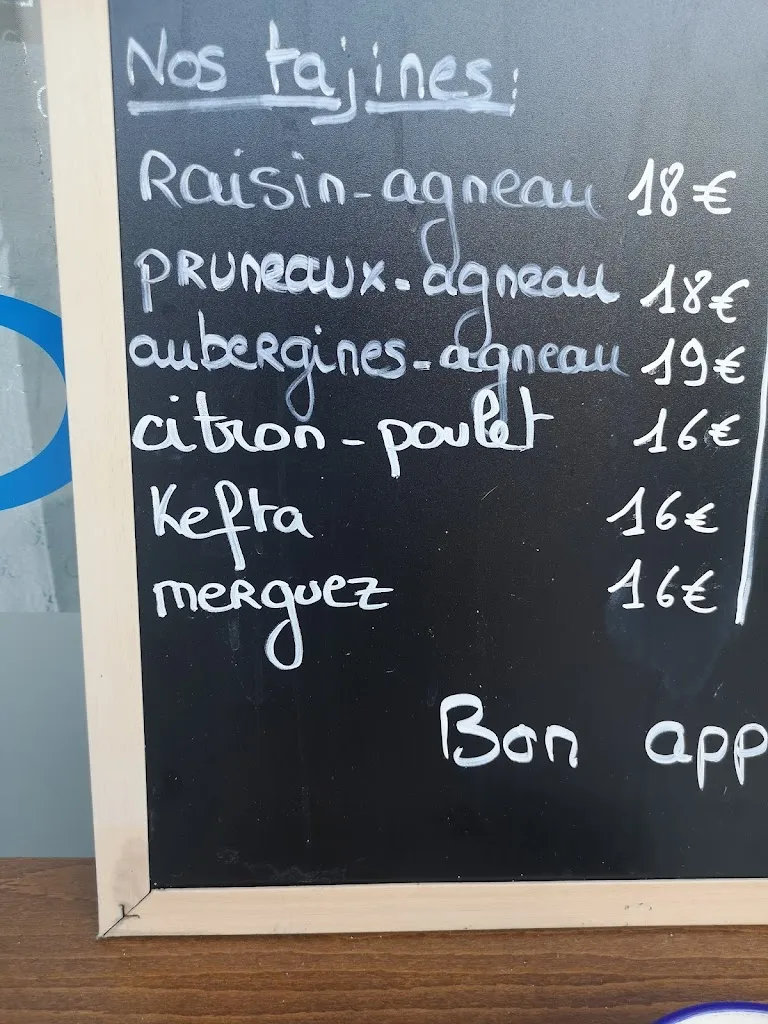 Nos tajines:
Raisin-agneau 18€
PRUNEAUX-agneau 18€
aubergines-agneau 19€
citron-poulet 16€
Kefta 16€
merguez 16€
Bon app